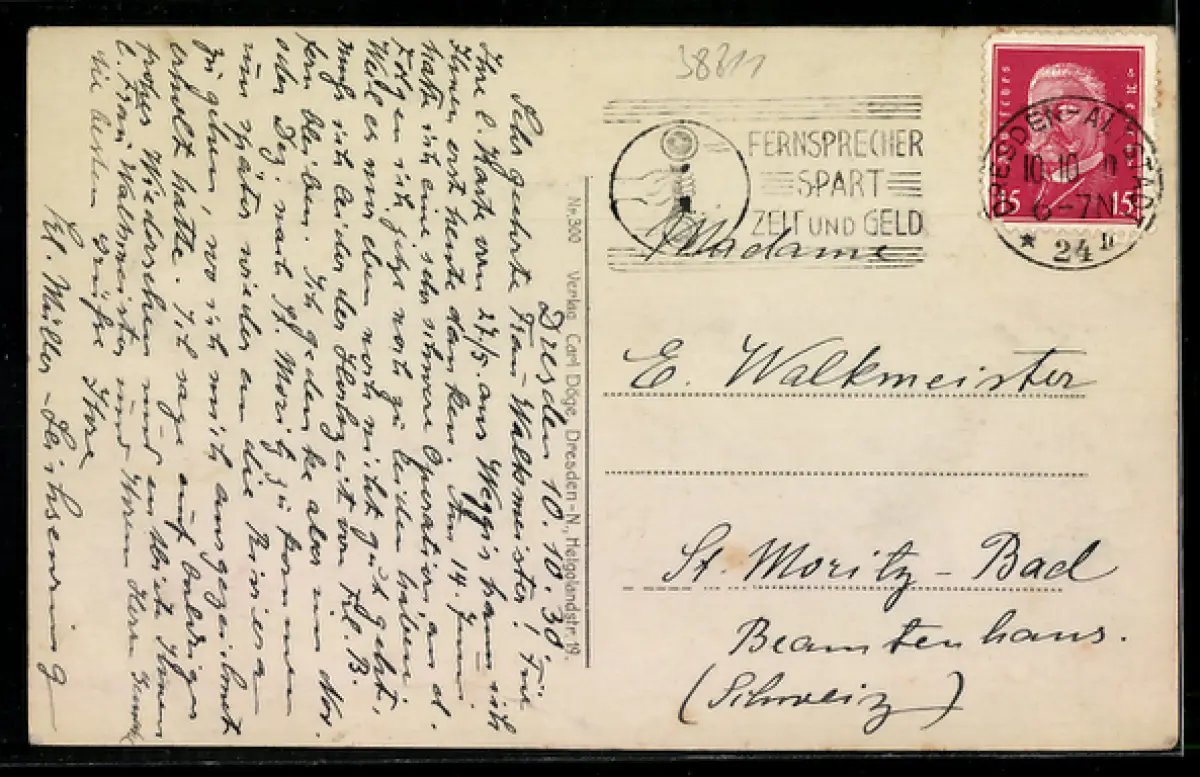 38211
FERNSPRECHER
SPART
ZEIT UND GELD
DRESDEN-ALTSTADT
10.10.
6-7N
* 24 b
15 15
Madame
E. Walkmeister
St. Moritz-Bad
Beamtenhaus.
(Schweiz)
Nr. 300 Verlag Carl Döge, Dresden-N., Helgolandstr. 19.
Dresden 10.10.30
Sehr geehrte Frau Walkmeister! Für
Ihre l. Karte vom 27/5. aus Weggis kann ich
Ihnen erst heute danken. Am 14. Juni
hatte ich eine sehr schwere Operation, an d.
Folgen ich jetzt noch zu leiden habe.
Weil es mir eben noch nicht gut geht,
muß ich leider der Hochzeit von Frl. B.
fern bleiben. Ich gedenke aber im Nov.
oder Dez. nach St. Moritz zu kommen
um später wieder an die Riviera
zu gehen, wo ich mich ausgezeichnet
erholt hatte. Ich sage auf baldiges
frohes Wiedersehen und entbiete Ihnen
l. Frau Walkmeister und Ihrem Herrn
die besten Grüße Ihre
El. Müller-Leichsenring